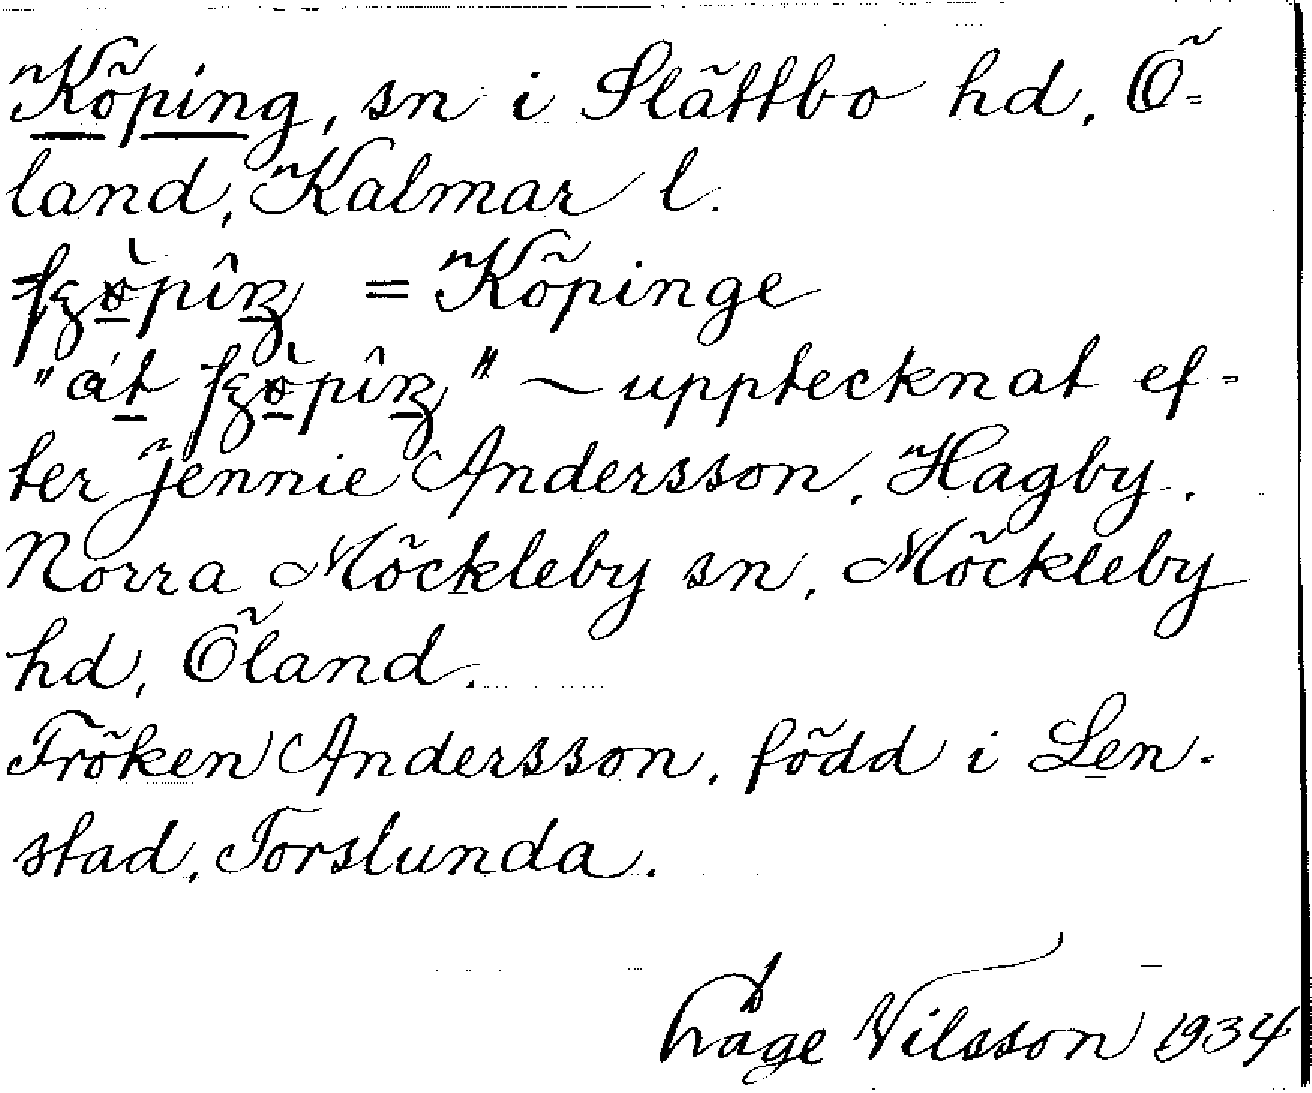 Köping, sn i Slättbo hd, Ö-
land, Kalmar l.
= Köpinge
"åt " ~ upptecknat ef-
ter Jennie Andersson, Hagby,
Norra Möckleby sn, Möckleby
hd, Öland.
Fröken Andersson, född i Len-
stad, Torslunda.
Nilsson 1934